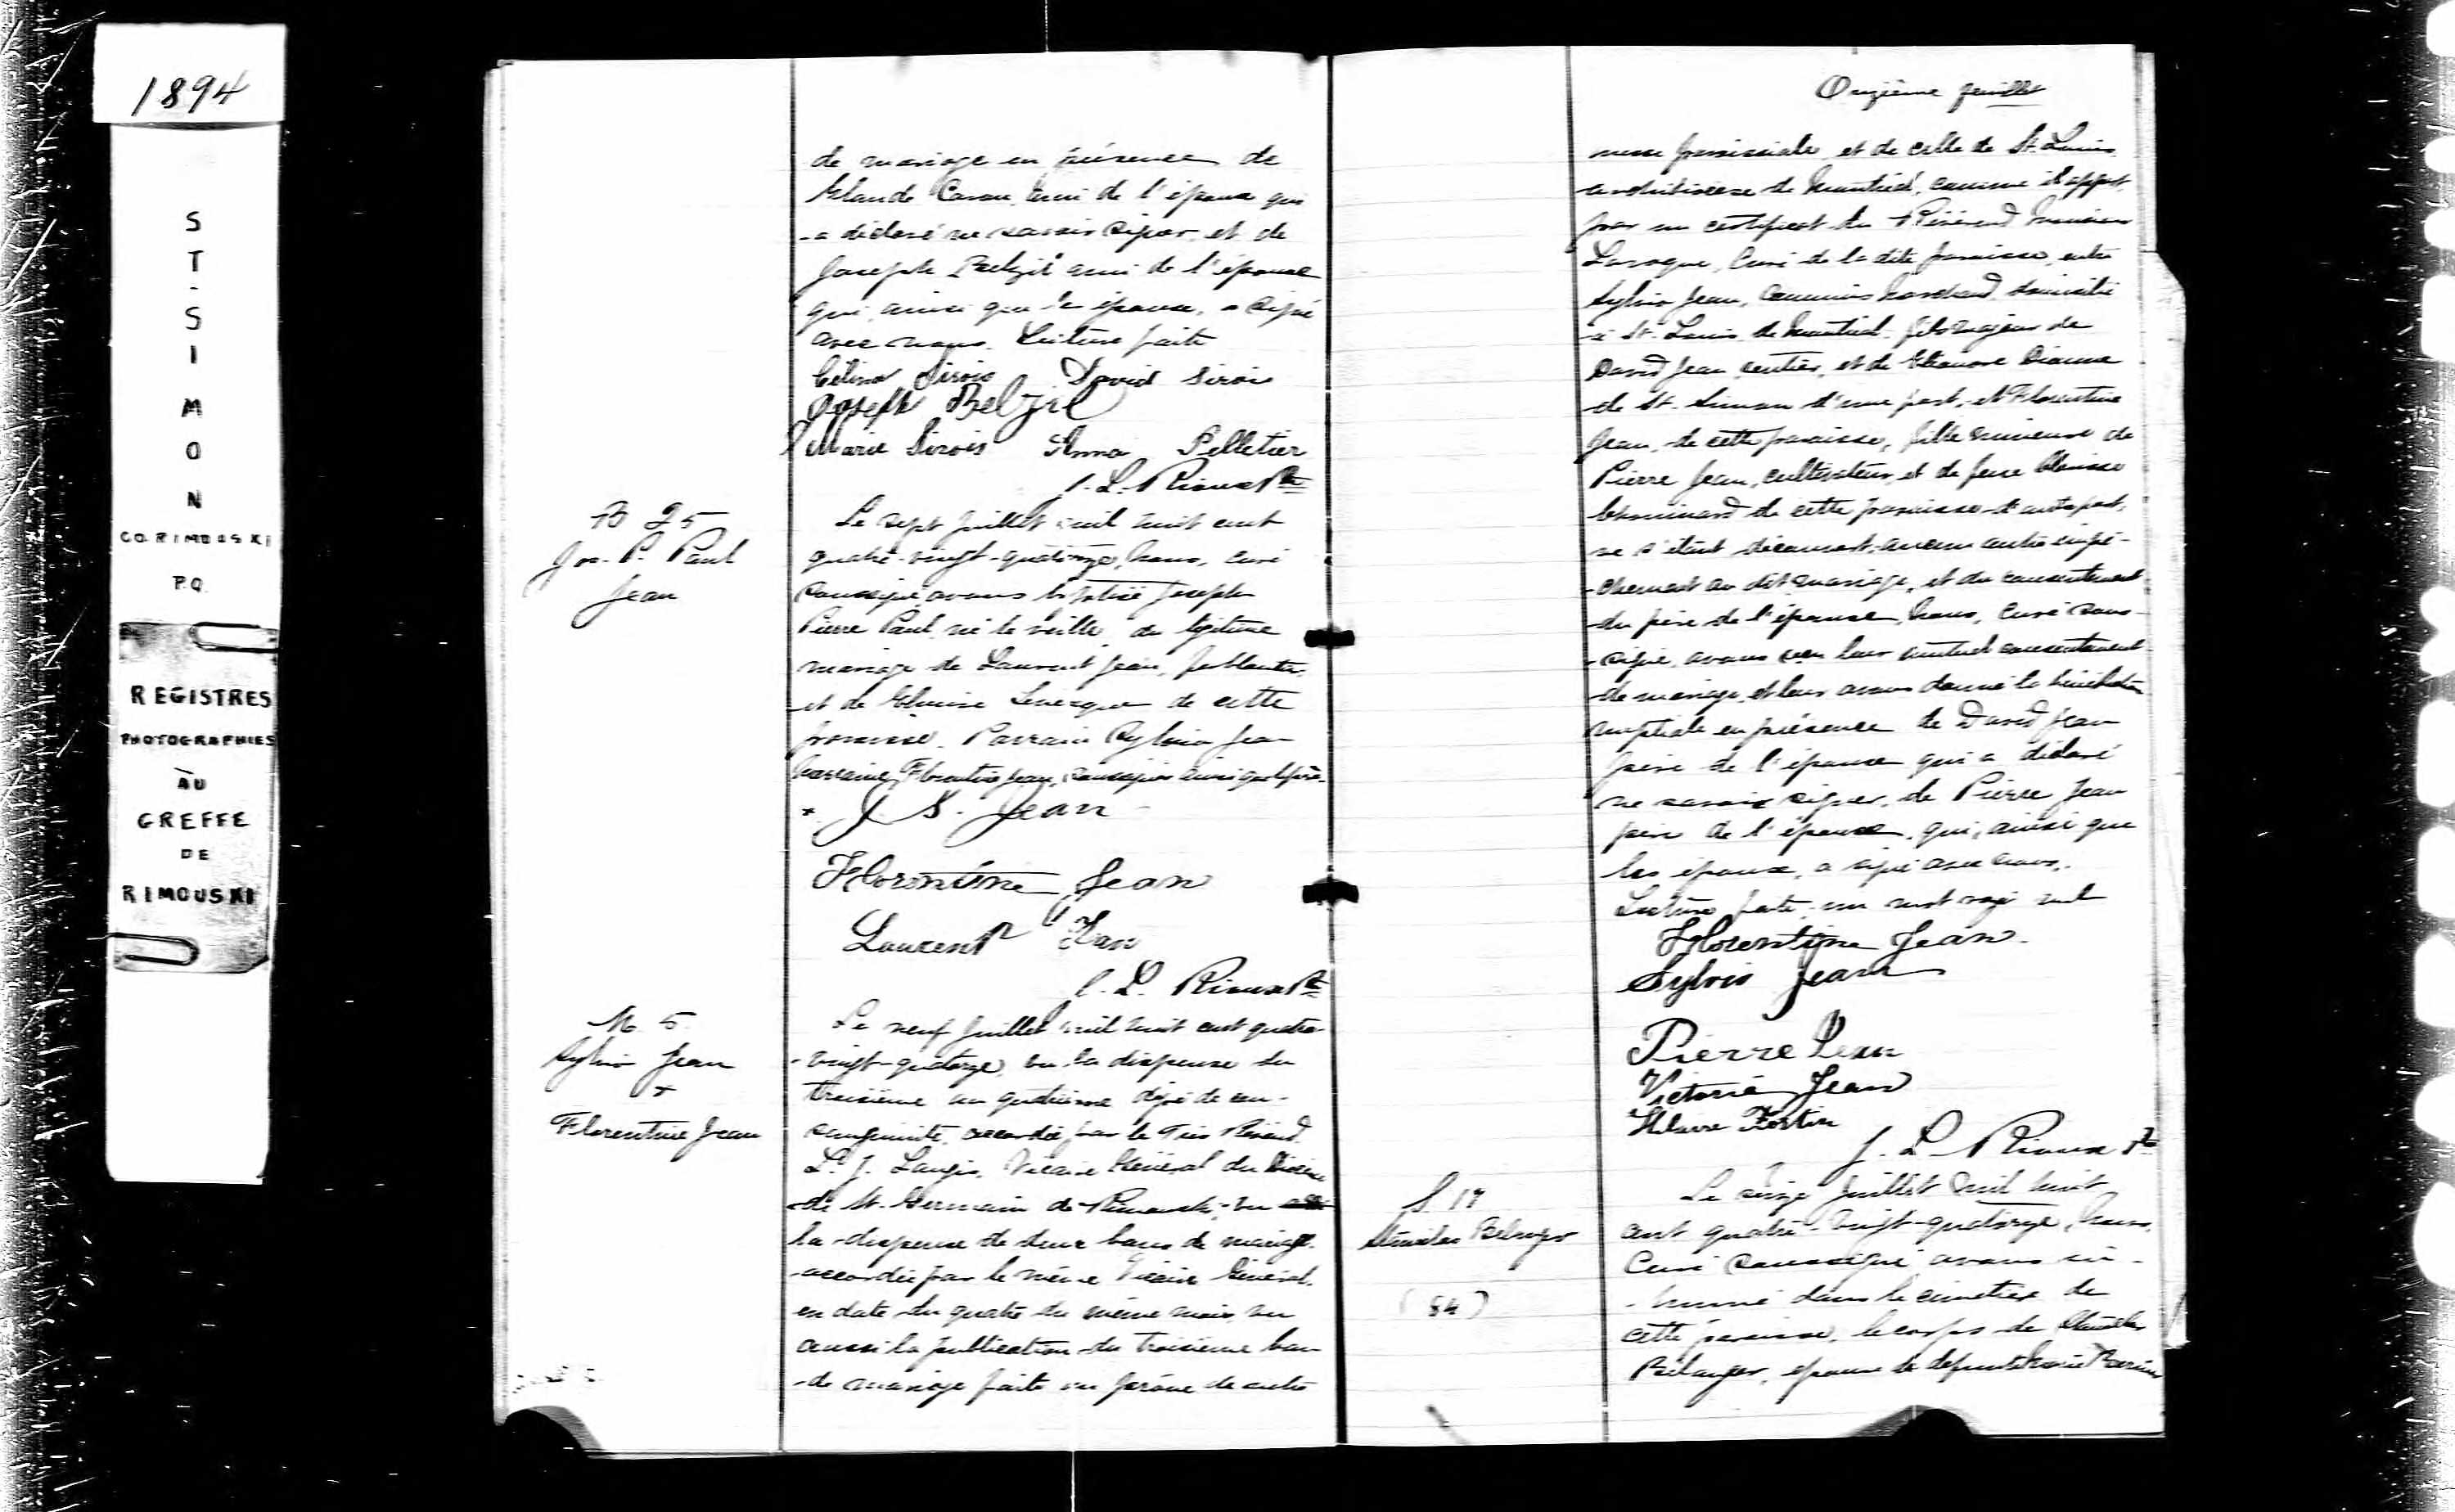 1894
ST-SIMON
CO. RIMOUSKI
P.Q.
REGISTRES
PHOTOGRAPHIES
AU
GREFFE
DE
RIMOUSKI
de mariage en présence de
Caron, ami de l'époux qui
a déclaré ne savoir signer, et de
Joseph Belzil ami de l'épouse
qui, ainsi que les époux, a signé
avec nous. Lecture faite
Célina Sirois David Sirois
Joseph Belzil
Marie Sirois Anna Pelletier
J. L. Rioux Ptre
B 25
Jos. P. Paul
Jean
Le sept Juillet mil huit cent
quatre-vingt-quatorze, Nous, curé
soussigné avons baptisé Joseph
Pierre Paul, né la veille, du légitime
mariage de Laurent Jean, ferblantier,
et de Levesque de cette
paroisse. Parrain Sylvio Jean
Marraine Florentine Jean, soussignés ainsi que le père.
x J. S. Jean
Florentine Jean
Laurent Jean
J. L. Rioux Ptre
M. 5.
Sylvio Jean
+
Florentine Jean
Le neuf Juillet mil huit cent quatre
-vingt-quatorze, vu la dispense du
troisième au quatrième degré de con-
sanguinité, accordée par le Très Révérend
L. J. Langis, Vicaire Général du Diocèse
de St. Germain de Rimouski; vu
la dispense de deux bans de mariage
accordée par le même Vicaire Général,
en date du quatre du même mois, vu
aussi la publication du troisième ban
de mariage faite au prône de notre
Onzième feuillet
messe paroissiale et de celle de St. Louis
archidiocèse de Montréal, comme il appert
par un certificat du Révérend Monsieur
Larocque, Curé de la dite paroisse, entre
Sylvio Jean, Commis Marchand, domicilié
à St. Louis de Montréal, fils majeur de
David Jean, rentier, et de Eléonore Dionne
de St. Simon d'une part, et Florentine
Jean, de cette paroisse, fille mineure de
Pierre Jean, cultivateur, et de feue
de cette paroisse d'autre part,
ne s'étant découvert aucun autre empê-
-chement au dit mariage, et du consentement
du père de l'épouse, Nous, Curé sous-
-signé, avons reçu leur mutuel consentement
de mariage, et leur avons donné la bénédiction
nuptiale en présence de David Jean
père de l'époux qui a déclaré
ne savoir signer, de Pierre Jean
père de l'épouse, qui, ainsi que
les époux, a signé avec nous.
Lecture faite; un mot rayé nul
Florentine Jean.
Sylvio Jean
Pierre Jean
Victoria Jean
Hilaire Fortin
J. L. Rioux Ptre
S. 17
Stanislas Belanger
(84)
Le seize Juillet mil huit
cent quatre-vingt-quatorze, Nous,
Curé soussigné avons in-
-humé dans le cimetière de
cette paroisse, le corps de Stanislas
Bélanger, époux de défunte Marie